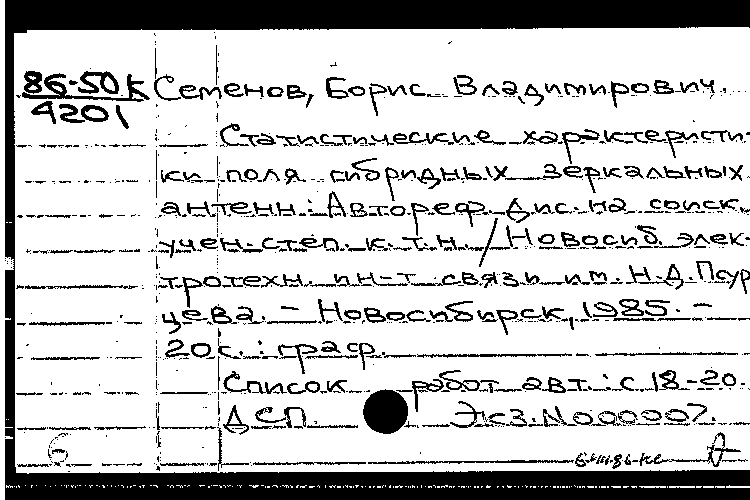 86-50к Семенов, Борис Владимирович.
4201
Статистические характеристи-
ки поля гибридных зеркальных
антенн: Автореф. дис. на соиск.
учен. степ. к.т.н. / Новосиб. элек-
тротехн. ин-т связи им. Н.Д. Псур
цева. - Новосибирск, 1985. -
20с.: граф.
Список работ авт.: с 18-20.
ДСП. Экз. N000007.
б